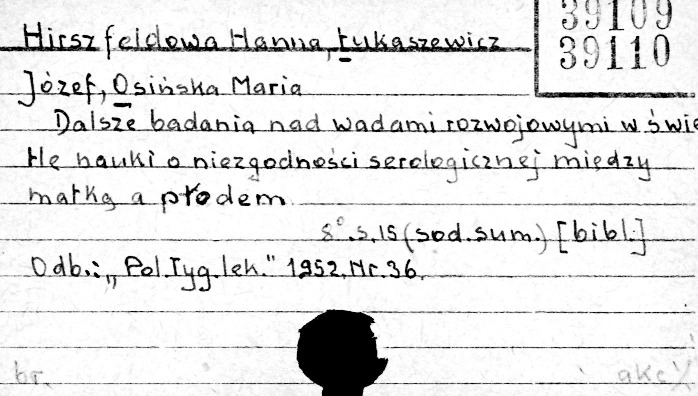 39109
39110
Hirszfeldowa Hanna, Łukaszewicz
Józef, Osińska Maria
Dalsze badania nad wadami rozwojowymi w świe
tle nauki o niezgodności serologicznej między
matką a płodem
8°.s.15 (sod.sum.) [bibl.]
Odb.: „Pol.Tyg.lek." 1952.Nr.36.
br.
akc